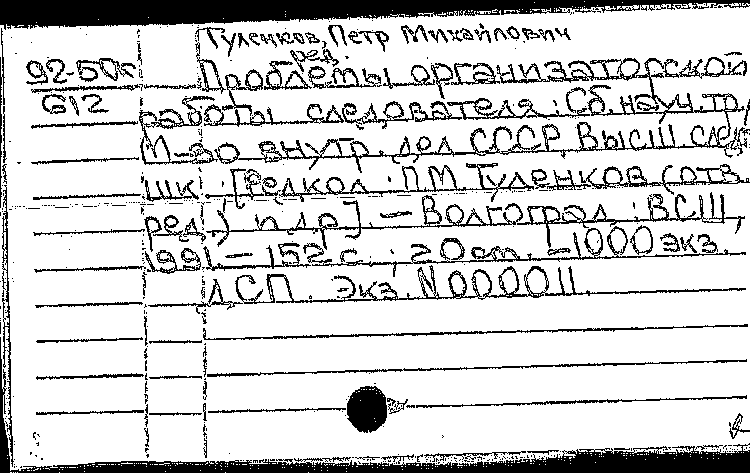 Туленков, Петр Михайлович
ред.
92-50к Проблемы организаторской
612 работы следователя : Сб. науч. тр. /
М-во внутр. дел СССР, Высш. след.
шк. ; [Редкол. : П.М. Туленков (отв.
ред.) и др]. — Волгоград : ВСШ,
1991. — 152 с. ; 20 см. — 1000 экз.,
ДСП. Экз. N 000011.